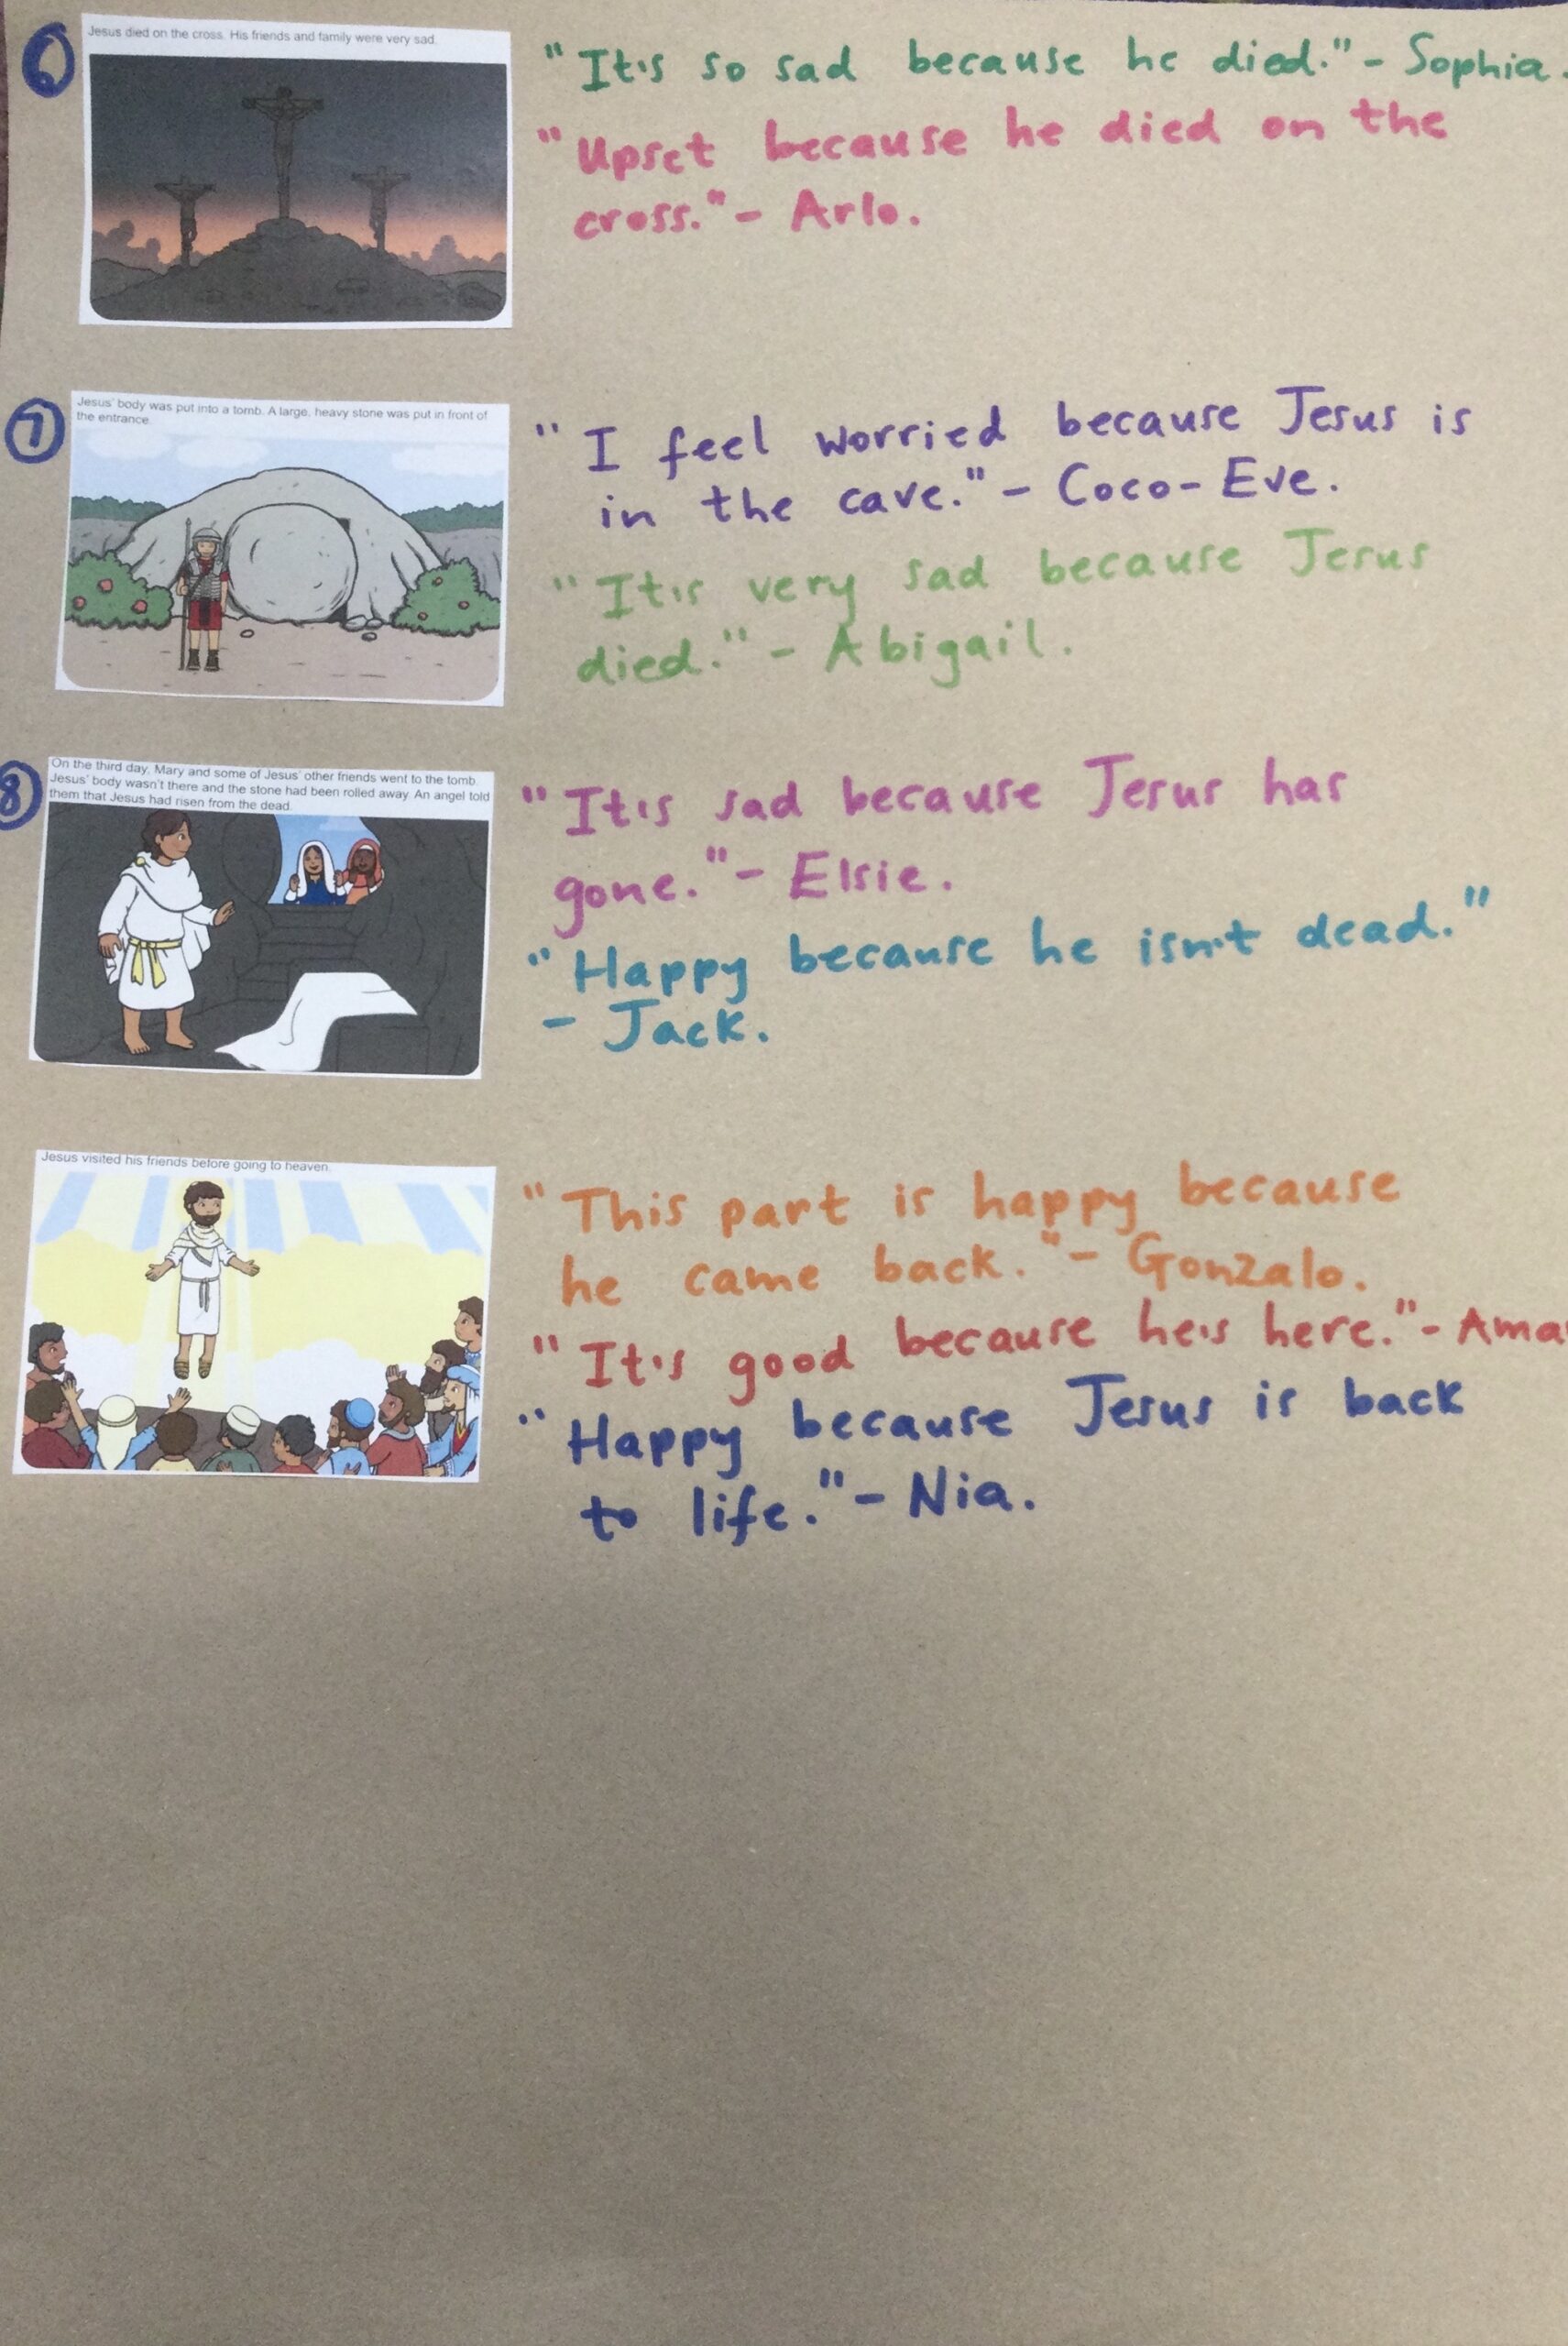 6
Jesus died on the cross. His friends and family were very sad.
"It's so sad because he died." - Sophia.
"Upset because he died on the
cross." - Arlo.
7
Jesus' body was put into a tomb. A large, heavy stone was put in front of
the entrance.
"I feel worried because Jesus is
in the cave." - Coco-Eve.
"It's very sad because Jesus
died." - Abigail.
8
On the third day, Mary and some of Jesus' other friends went to the tomb.
Jesus' body wasn't there and the stone had been rolled away. An angel told
them that Jesus had risen from the dead.
"It's sad because Jesus has
gone." - Elsie.
"Happy because he isn't dead."
- Jack.
Jesus visited his friends before going to heaven.
"This part is happy because
he came back." - Gonzalo.
"It's good because he's here." -
"Happy because Jesus is back
to life." - Nia.